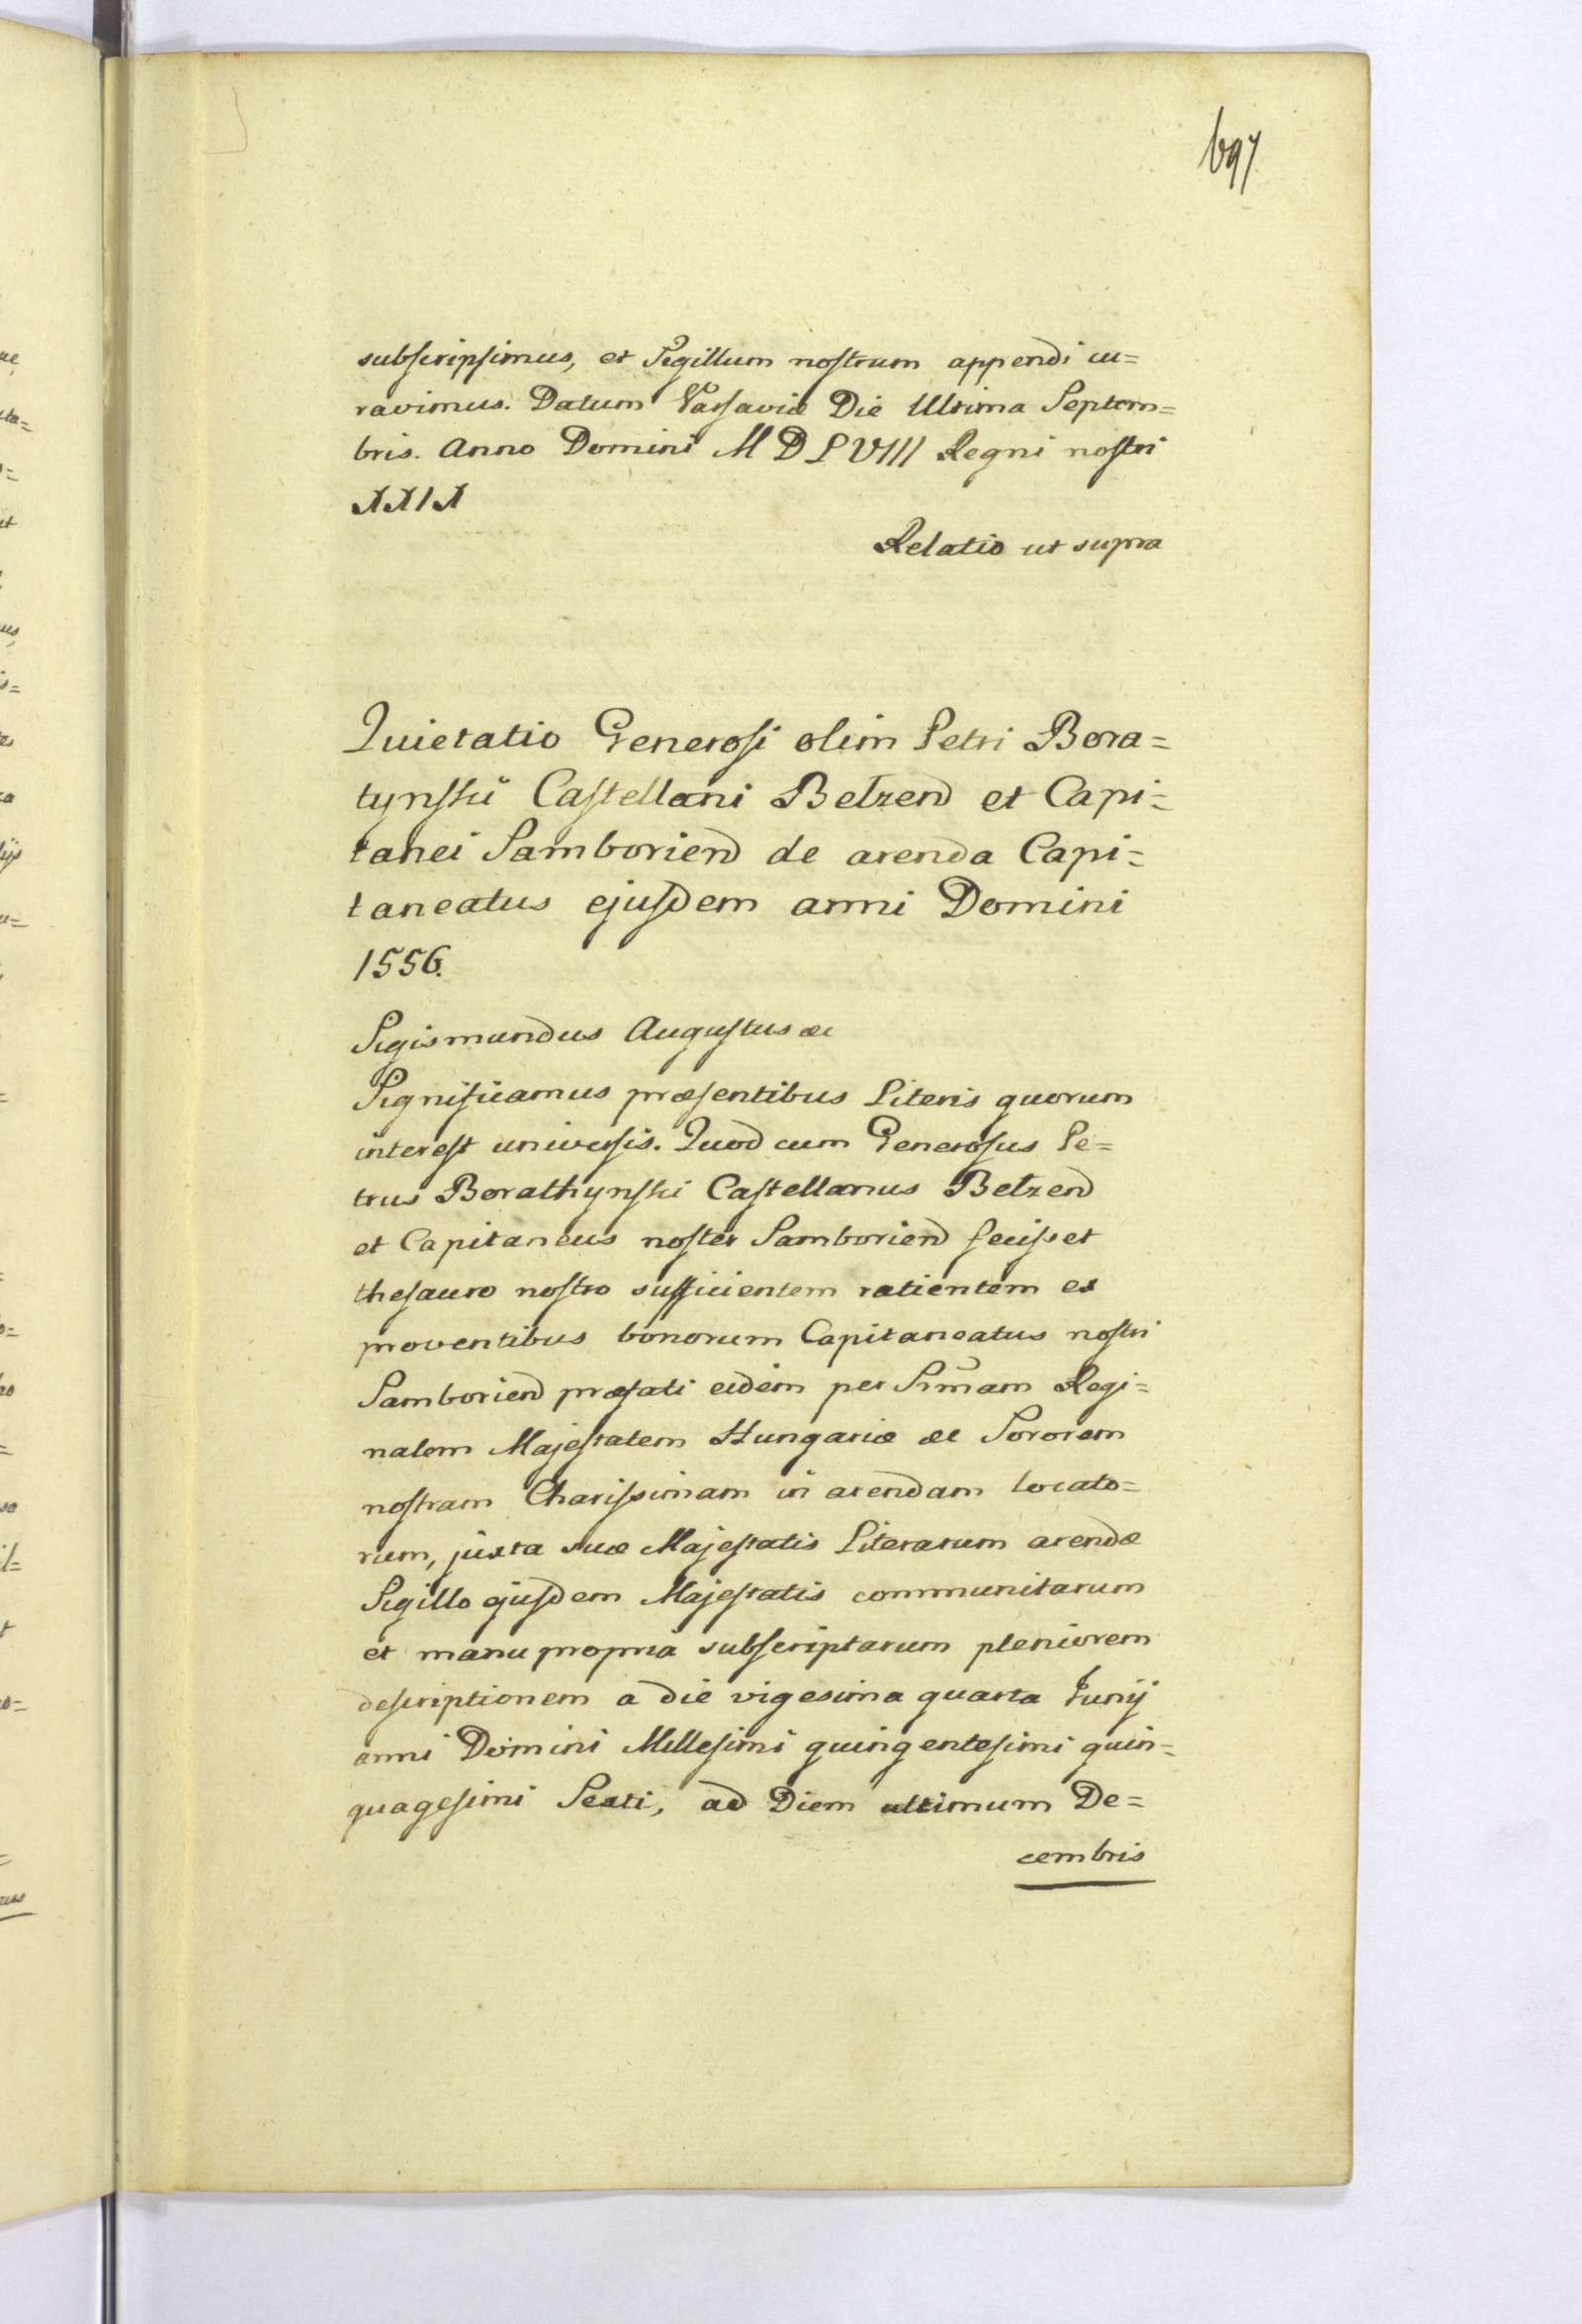 697
subscripsimus, et Sigillum nostrum appendi cu=
ravimus. Datum Varsaviæ Die Ultima Septem=
bris. Anno Domini MDLVIII Regni nostri
XXIX
Relatio ut supra
Quietatio Generosi olim Petri Bora=
tynskii Castellani Belzen et Capi=
tanei Samborien de arenda Capi=
taneatus ejusdem anni Domini
1556.
Sigismundus Augustus &c
Significamus præsentibus Literis quorum
interest universis. Quod cum Generosus Pe=
trus Borathynski Castellanus Belzen
et Capitaneus noster Samborien fecisset
thesauro nostro sufficientem ratientem ex
proventibus bonorum Capitaneatus nostri
Samborien præfati eidem per Srm̃am Regi=
nalem Majestatem Hungariæ &c Sororem
nostram Charissimam in arendam locato=
rum, juxta suæ Majestatis Literarum arendæ
Sigillo ejusdem Majestatis communitarum
et manu propria subscriptarum pleniorem
descriptionem a die vigesima quarta Junij
anni Domini Millesimi quingentesimi quin=
quagesimi Sexti, ad Diem ultimum De=
cembris